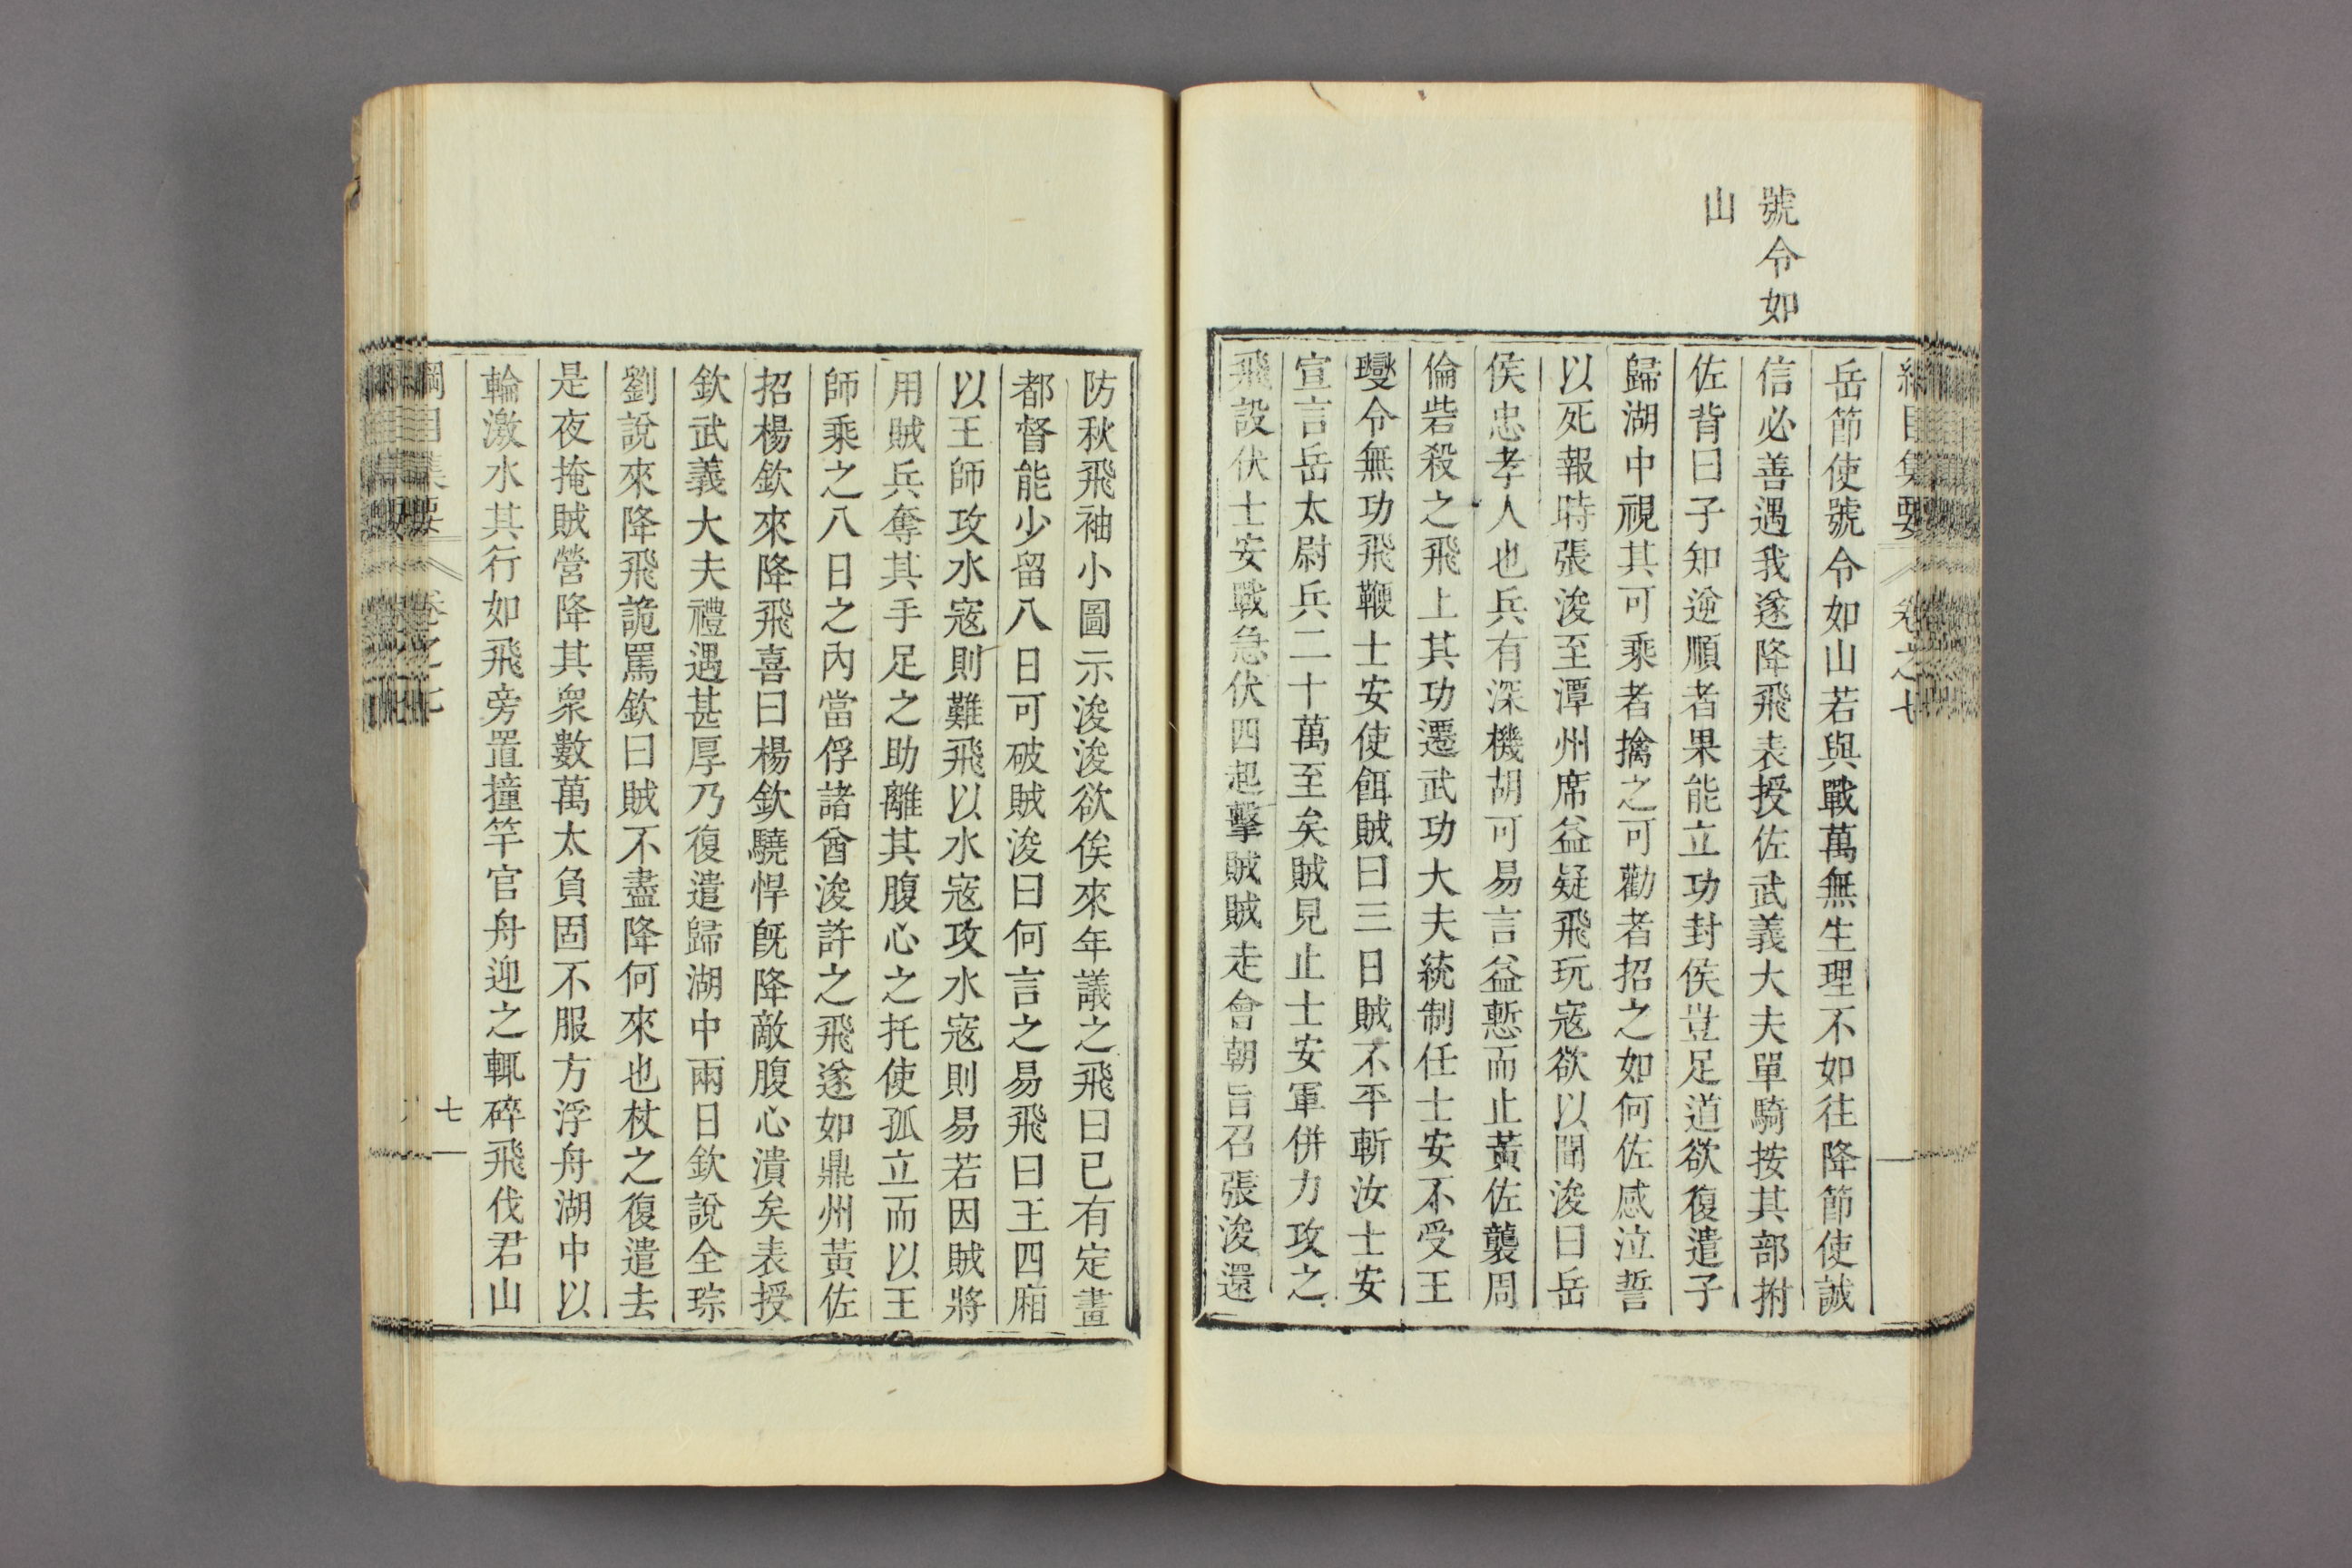 號令如
山
岳節使號令如山若與戰萬無生理不如往降節使誠
信必善遇我遂降飛表授佐武義大夫單騎按其部拊
佐背曰子知逆順者果能立功封侯豈足道欲復遣子
歸湖中視其可乘者擒之可勸者招之如何佐感泣誓
以死報時張浚至潭州席益疑飛玩寇欲以聞浚曰岳
侯忠孝人也兵有深機胡可易言益慙而止黃佐襲周
倫砦殺之飛上其功遷武功大夫統制任士安不受王
𤫊令無功飛鞭士安使餌賊曰三日賊不平斬汝士安
宣言岳太尉兵二十萬至矣賊見止士安軍併力攻之
飛設伏士安戰急伏四起擊賊賊走會朝旨召張浚還
防秋飛袖小圖示浚浚欲俟來年議之飛曰已有定畫
都督能少留八日可破賊浚曰何言之易飛曰王四廂
以王師攻水寇則難飛以水寇攻水寇則易若因賊將
用賊兵奪其手足之助離其腹心之托使孤立而以王
師乘之八日之內當俘諸酋浚許之飛遂如鼎州黃佐
招楊欽來降飛喜曰楊欽驍悍旣降敵腹心潰矣表授
欽武義大夫禮遇甚厚乃復遣歸湖中兩日欽說全琮
劉說來降飛詭罵欽曰賊不盡降何來也杖之復遣去
是夜掩賊營降其衆數萬太負固不服方浮舟湖中以
輪激水其行如飛旁置撞竿官舟迎之輒碎飛伐君山
綱目集要 卷之七 七